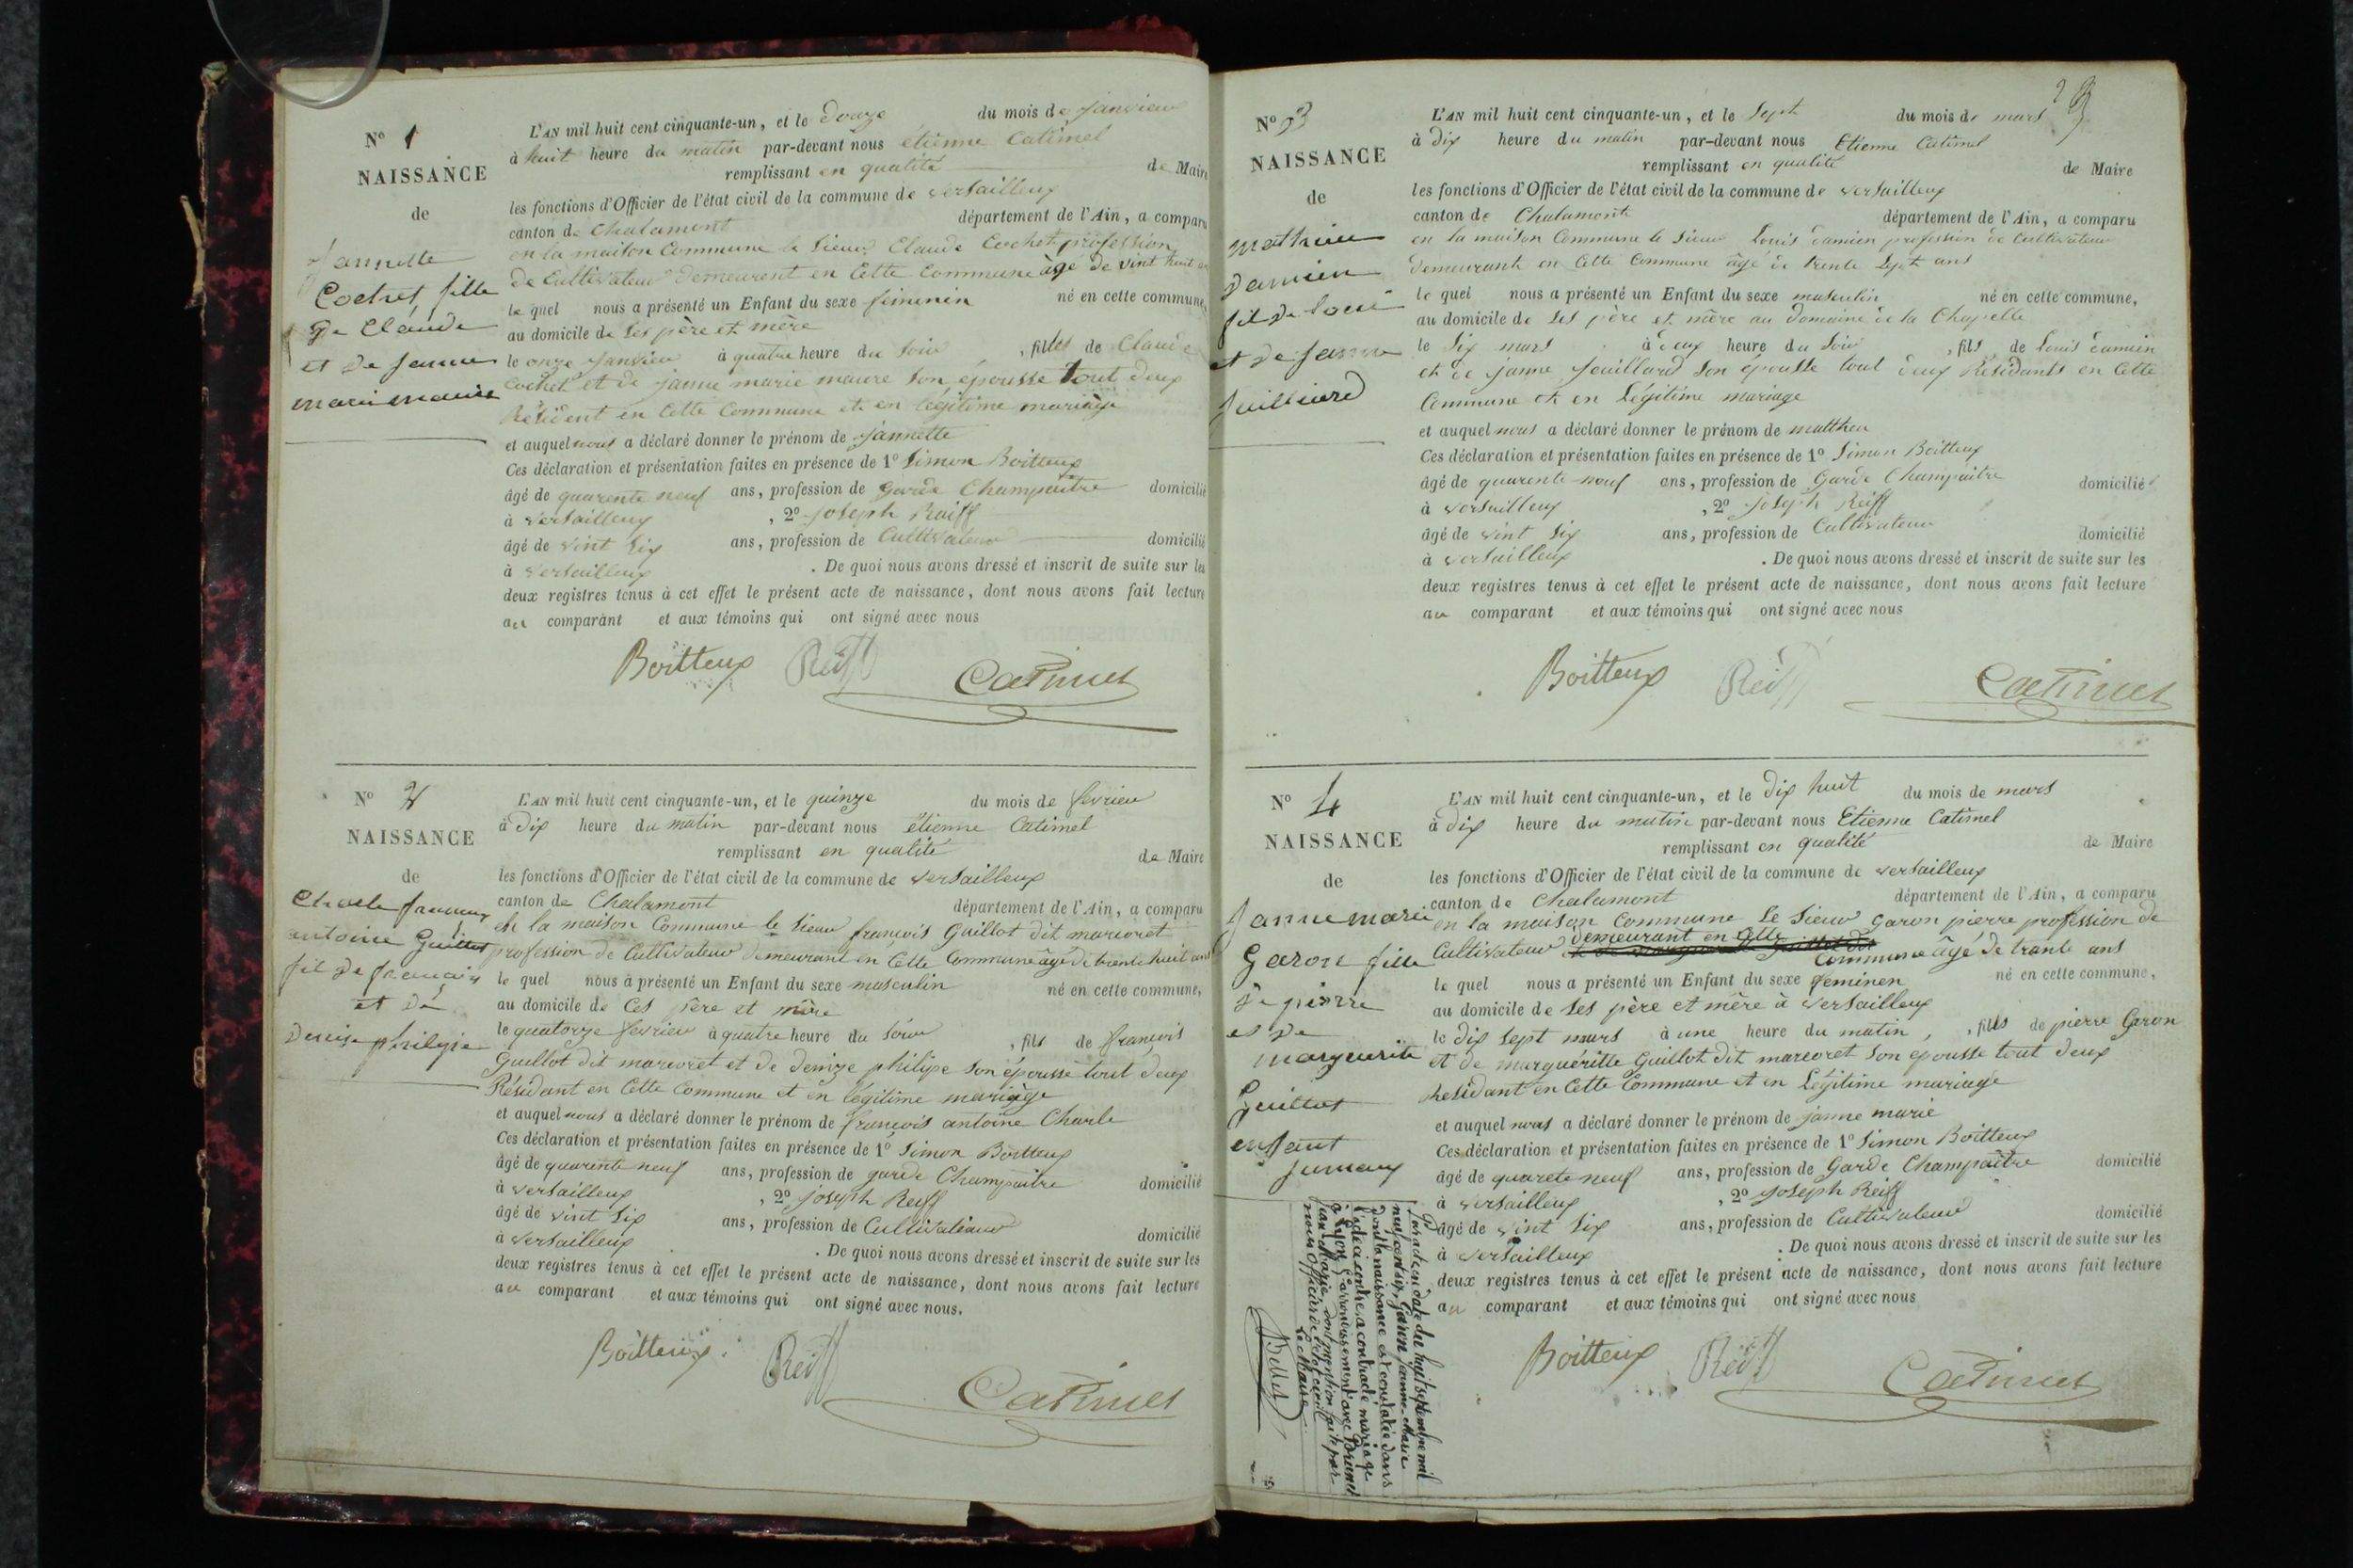 N° 1
NAISSANCE
de
Jannette
Cochet, fille
de Claude
et de Janne
marie maurie
L'AN mil huit cent cinquante-un, et le douze du mois de janvier
à huit heure du matin par-devant nous étienne Catimel
remplissant en qualité de Maire
les fonctions d'Officier de l'état civil de la commune de versailleux
canton de Chalamont département de l'Ain, a comparu
en la maison Commune le sieur Claude Cochet profession
de Cultivateur demeurent en Cette Commune âgé de vint huit an
le quel nous a présenté un Enfant du sexe féminin né en cette commune,
au domicile de ses père et mère
le onze janvier à quatre heure du soir , filles de Claude
Cochet et de janne marie maure son épousse tout deux
Résident en Cette Commune et en légitime mariage
et auquel nous a déclaré donner le prénom de jannette
Ces déclaration et présentation faites en présence de 1° Simon Boitteux
âgé de quarente neuf ans, profession de garde Champaitre domicilié
à versailleux , 2° joseph Reiff
âgé de vint six ans, profession de Cultivateur domicilié
à versailleux . De quoi nous avons dressé et inscrit de suite sur les
deux registres tenus à cet effet le présent acte de naissance, dont nous avons fait lecture
au comparant et aux témoins qui ont signé avec nous
Boitteux Reiff Catimel
N° 2
NAISSANCE
de
Charle francois
antoine Guillot
fil de francois
et de
Denise philipe
L'AN mil huit cent cinquante-un, et le quinze du mois de fevrier
à dix heure du matin par-devant nous étienne Catimel
remplissant en qualité de Maire
les fonctions d'Officier de l'état civil de la commune de versailleux
canton de Chalamont département de l'Ain, a comparu
en la maison Commune le sieur françois Guillot dit marcoret
profession de Cultivateur demeurant en Cette Commune âgé de trente huit ans
le quel nous a présenté un Enfant du sexe masculin né en cette commune,
au domicile de Ces père et mère
le quatorze fevrier à quatre heure du soir , fils de françois
Guillot dit marcoret et de denize philipe son épousse tout deux
Résidant en Cette Commune et en légitime mariage
et auquel nous a déclaré donner le prénom de françois antoine Charle
Ces déclaration et présentation faites en présence de 1° Simon Boitteux
âgé de quarente neuf ans, profession de garde Champaitre domicilié
à versailleux , 2° joseph Reiff
âgé de vint six ans, profession de Cultivateur domicilié
à versailleux . De quoi nous avons dressé et inscrit de suite sur les
deux registres tenus à cet effet le présent acte de naissance, dont nous avons fait lecture
au comparant et aux témoins qui ont signé avec nous.
Boitteux Reiff Catimel
N° 3
NAISSANCE
de
mathieu
Damien
fil de Loui
et de Janne
Juilliard
L'AN mil huit cent cinquante-un, et le sept du mois de mars
à dix heure du matin par-devant nous Etienne Catimel
remplissant en qualité de Maire
les fonctions d'Officier de l'état civil de la commune de versailleux
canton de Chalamont département de l'Ain, a comparu
en la maison Commune le sieur Louis damien profession de Cultivateur
demeurant en Cette Commune âgé de trente sept ans
le quel nous a présenté un Enfant du sexe masculin né en cette commune,
au domicile de ses père et mère au domaine de la Chapelle
le six mars à deux heure du soir , fils de Louis damien
et de janne Jouillard son épousse tout deux Résidants en Cette
Commune et en Légitime mariage
et auquel nous a déclaré donner le prénom de mattheu
Ces déclaration et présentation faites en présence de 1° Simon Boitteux
âgé de quarente neuf ans, profession de Garde Champaitre domicilié
à versailleux , 2° joseph Reiff
âgé de vint six ans, profession de Cultivateur domicilié
à versailleux . De quoi nous avons dressé et inscrit de suite sur les
deux registres tenus à cet effet le présent acte de naissance, dont nous avons fait lecture
au comparant et aux témoins qui ont signé avec nous
Boitteux Reiff Catimel
N° 4
NAISSANCE
de
Janne marie
Garon fille
de pierre
et de
marguerite
Guillot
enfant
Jumeaux
L'AN mil huit cent cinquante-un, et le dix huit du mois de mars
à dix heure du matin par-devant nous Etienne Catimel
remplissant en qualité de Maire
les fonctions d'Officier de l'état civil de la commune de versailleux
canton de Chalamont département de l'Ain, a comparu
en la maison Commune Le sieur Garon pierre profession de
Cultivateur demeurant en Cette Commune âgé de trante ans
le quel nous a présenté un Enfant du sexe feminen né en cette commune,
au domicile de ses père et mère à versailleux
le dix sept mars à une heure du matin , filles de pierre Garon
et de marguéritte Guillot dit marcoret son épousse tout deux
Residant en Cette Commune et en Légitime mariage
et auquel nous a déclaré donner le prénom de janne marie
Ces déclaration et présentation faites en présence de 1° Simon Boitteux
âgé de quarete neuf ans, profession de Garde Champaitre domicilié
à versailleux , 2° joseph Reiff
âgé de vint six ans, profession de Cultivateur domicilié
à versailleux . De quoi nous avons dressé et inscrit de suite sur les
deux registres tenus à cet effet le présent acte de naissance, dont nous avons fait lecture
au comparant et aux témoins qui ont signé avec nous
Boitteux Reiff Catimel
Par acte en date du huit septembre mil
neuf cent six, Garon Jeanne-Marie
dont la naissance est constatée dans
l'acte ci contre, a contracté mariage
à Lyon arrondissement avec Brunet
Jean Marie, dont mention faite par
nous Officier de l'état civil
Le Maire